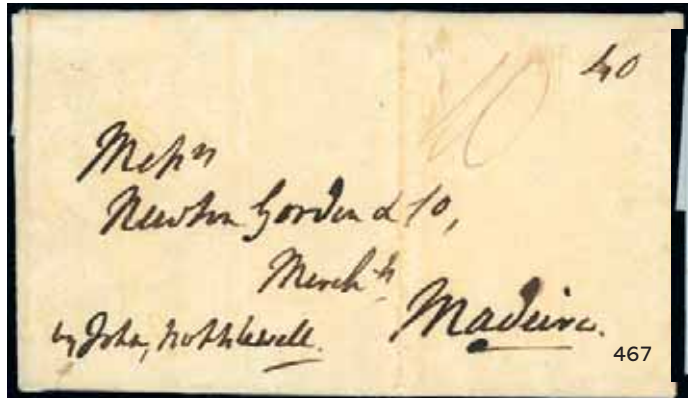 40
10
Messrs
Newton Gordon & Co,
Merchts
Madeira.
by John,
467